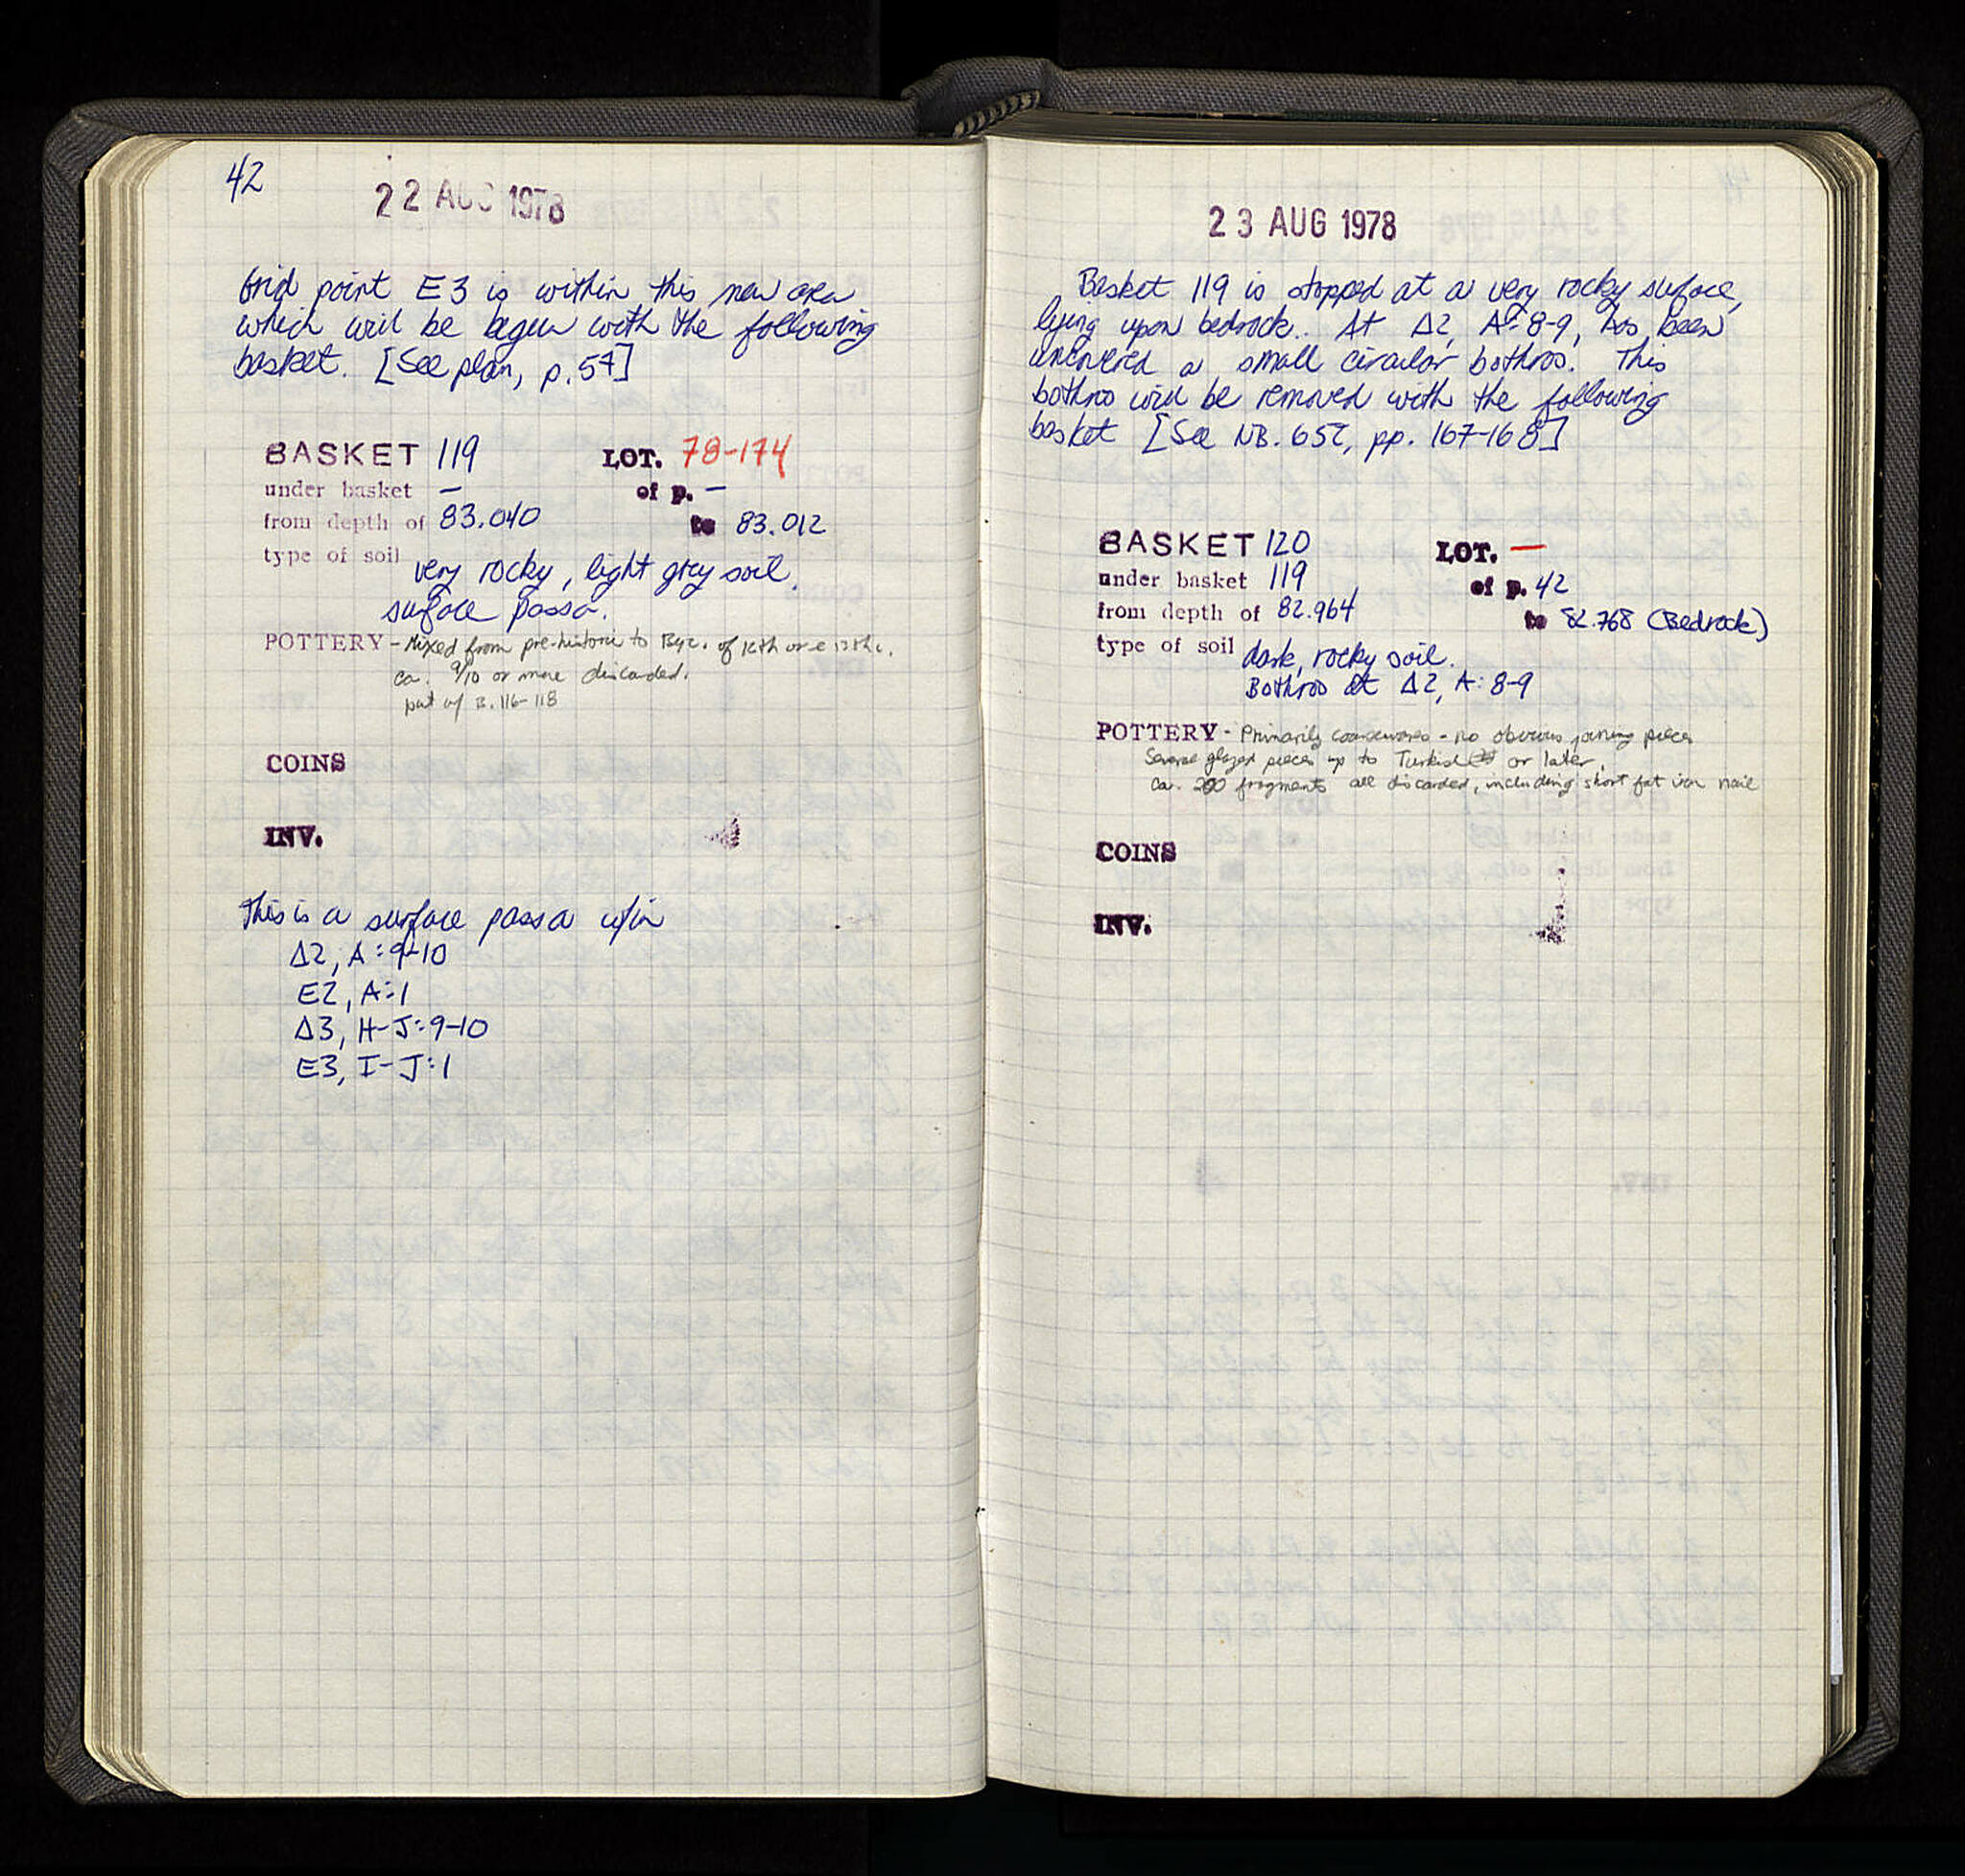 42
22 AUG 1978
Grid point E3 is within this new area
which will be begun with the following
basket. [See plan, p.57]
BASKET 119 LOT. 78-174
under basket — of p. —
from depth of 83.040 to 83.012
type of soil very rocky, light grey soil.
surface passa.
POTTERY - Mixed from pre-historic to Byz. of 12th or e 13th c.
ca. 9/10 or more discarded.
put w/ B. 116-118
COINS
INV.
This is a surface passa w/in
Δ2, A:9-10
E2, A:1
Δ3, H-J:9-10
E3, I-J:1
23 AUG 1978
Basket 119 is stopped at a very rocky surface,
lying upon bedrock. At Δ2, A:8-9, has been
uncovered a small circular bothros. This
bothros will be removed with the following
basket [See NB. 657, pp. 167-168]
BASKET 120 LOT. —
under basket 119 of p. 42
from depth of 82.964 to 82.768 (Bedrock)
type of soil dark, rocky soil.
Bothros at Δ2, A:8-9
POTTERY - Primarily coarsewares - no obvious joining pieces
Several glazed pieces up to Turkish or later,
ca. 200 fragments all discarded, including short fat iron nail
COINS
INV.